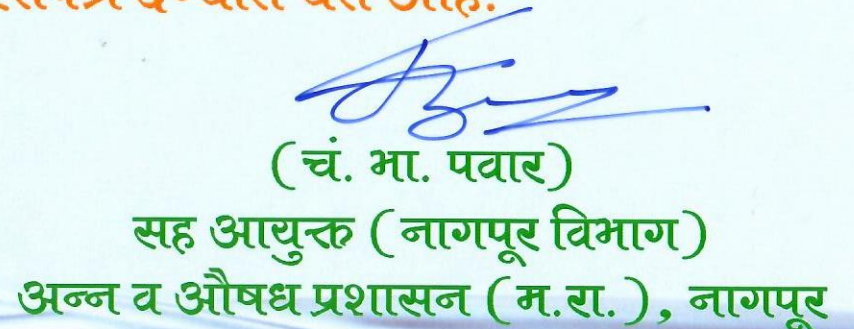 देण्यात येत आहे.
(चं. भा. पवार)
सह आयुक्त (नागपूर विभाग)
अन्न व औषध प्रशासन (म.रा.), नागपूर